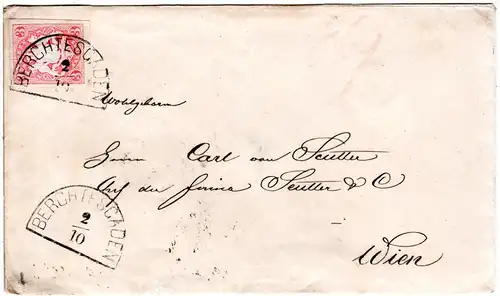 BERCHTESGADEN
2
10
Wohlgeborn
Herrn Carl von Seutter
Auf der Firma Seutter & C
BERCHTESGADEN
2
10
Wien